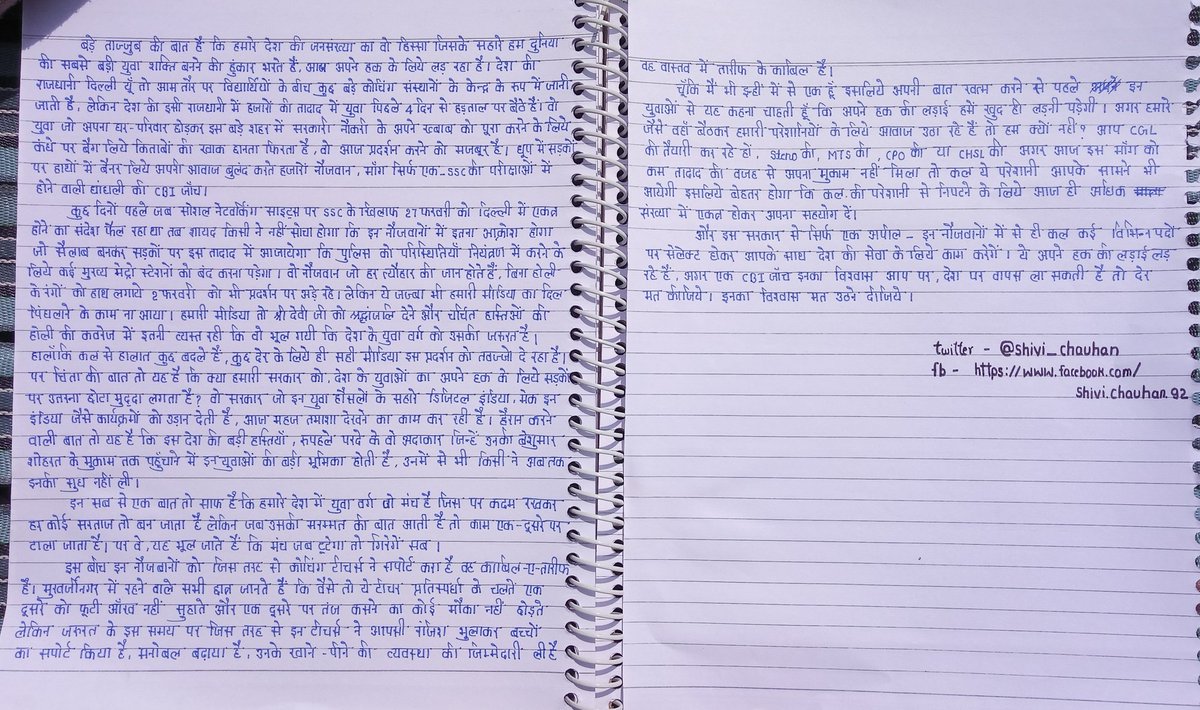 बड़े ताज्जुब की बात है कि हमारे देश की जनसंख्या का वो हिस्सा जिसके सहारे हम दुनिया
की सबसे बड़ी युवा शक्ति बनने की हुंकार भरते है, आज अपने हक के लिये लड़ रहा है। देश की
राजधानी दिल्ली यूँ तो आम तौर पर विद्यार्थियों के बीच कुछ बड़े कोचिंग संस्थानों के केन्द्र के रूप में जानी
जाती है, लेकिन देश की इसी राजधानी में हजारों की तादाद में युवा पिछले 4 दिन से हड़ताल पर बैठे है। वो
युवा जो अपना घर-परिवार छोड़कर इस बड़े शहर में सरकारी नौकरी के अपने ख्वाब को पूरा करने के लिये
कंधे पर बैग लिये किताबों की खाक छानता फिरता है, वो आज प्रदर्शन करने को मजबूर है। धूप में सड़कों
पर हाथों में बैनर लिये अपनी आवाज बुलंद करते हजारों नौजवान, माँग सिर्फ एक - SSC की परीक्षाओं में
होने वाली धाँधली की CBI जाँच।
कुछ दिनों पहले जब सोशल नेटवर्किंग साइट्स पर SSC के खिलाफ 27 फरवरी को दिल्ली में एकत्र
होने का संदेश फैल रहा था तब शायद किसी ने नहीं सोचा होगा कि इन नौजवानों में इतना आक्रोश होगा
जो सैलाब बनकर सड़कों पर इस तादाद में आजायेगा कि पुलिस को परिस्थितियाँ नियंत्रण में करने के
लिये कई मुख्य मेट्रो स्टेशनों को बंद करना पड़ेगा। वो नौजवान जो हर त्यौहार की जान होते है, बिना होली
के रंगों को हाथ लगाये 2 फरवरी को भी प्रदर्शन पर अड़े रहे। लेकिन ये जज्बा भी हमारी मीडिया का दिल
पिघलाने के काम ना आया। हमारी मीडिया तो श्री देवी जी को श्रद्धांजलि देने और चर्चित हस्तिओं की
होली की कवरेज में इतनी व्यस्त रही कि वो भूल गयी कि देश के युवा वर्ग को उसकी जरूरत है।
हालाँकि कल से हालात कुछ बदले है, कुछ देर के लिये ही सही मीडिया इस प्रदर्शन को तवज्जो दे रहा है।
पर चिंता की बात तो यह है कि क्या हमारी सरकार को, देश के युवाओं का अपने हक के लिये सड़कों
पर उतरना छोटा मुद्दा लगता है? वो सरकार जो इन युवा हौसलों के सहारे डिजिटल इंडिया, मेक इन
इंडिया जैसे कार्यक्रमों को उड़ान देती है, आज महज तमाशा देखने का काम कर रही है। हैरान करने
वाली बात तो यह है कि इस देश की बड़ी हस्तियाँ, रुपहले परदे के वो अदाकार जिन्हें उनकी बेशुमार
शोहरत के मुकाम तक पहुँचाने में इन युवाओं की बड़ी भूमिका होती है, उनमें से भी किसी ने अब तक
इनकी सुध नहीं ली।
इन सब से एक बात तो साफ है कि हमारे देश में युवा वर्ग वो मंच है जिस पर कदम रखकर
हर कोई सरताज तो बन जाता है लेकिन जब उसकी मरम्मत की बात आती है तो काम एक-दूसरे पर
टाला जाता है। पर वे, यह भूल जाते हैं कि मंच जब टूटेगा तो गिरेगें सब।
इस बीच इन नौजवानों को जिस तरह से कोचिंग टीचर्स ने सपोर्ट करा है वह काबिल-ए-तारीफ
है। मुखर्जीनगर में रहने वाले सभी छात्र जानते है कि वैसे तो ये टीचर प्रतिस्पर्धा के चलते एक
दूसरे को फूटी आँख नहीं सुहाते और एक दूसरे पर तंज कसने का कोई मौका नहीं छोड़ते
लेकिन जरूरत के इस समय पर जिस तरह से इन टीचर्स ने आपसी रंजिश भुलाकर बच्चों
का सपोर्ट किया है, मनोबल बढ़ाया है, उनके खाने-पीने की व्यवस्था की जिम्मेदारी ली है
वह वास्तव में तारीफ के काबिल है।
चूँकि मैं भी इन्हीं में से एक हूँ इसलिये अपनी बात खत्म करने से पहले इन
युवाओं से यह कहना चाहती हूँ कि अपने हक की लड़ाई हमें खुद ही लड़नी पड़ेगी। अगर हमारे
जैसे वहाँ बैठकर हमारी परेशानियों के लिये आवाज उठा रहे है तो हम क्यों नहीं? आप CGL
की तैयारी कर रहे हो, Steno की, MTS की, CPO की या CHSL की अगर आज इस माँग को
कम तादाद की वजह से अपना मुकाम नहीं मिला तो कल ये परेशानी आपके सामने भी
आयेगी इसलिये बेहतर होगा कि कल की परेशानी से निपटने के लिये आज ही अधिक
संख्या में एकत्र होकर अपना सहयोग दें।
और इस सरकार से सिर्फ एक अपील - इन नौजवानों में से ही कल कई विभिन्न पदों
पर सेलेक्ट होकर आपके साथ देश की सेवा के लिये काम करेगें। ये अपने हक की लड़ाई लड़
रहे है, अगर एक CBI जाँच इनका विश्वास आप पर, देश पर वापस ला सकती है तो देर
मत कीजिये। इनका विश्वास मत उठने दीजिये।
twitter - @shivi_chauhan
fb - https://www.facebook.com/
shivi.chauhan.92